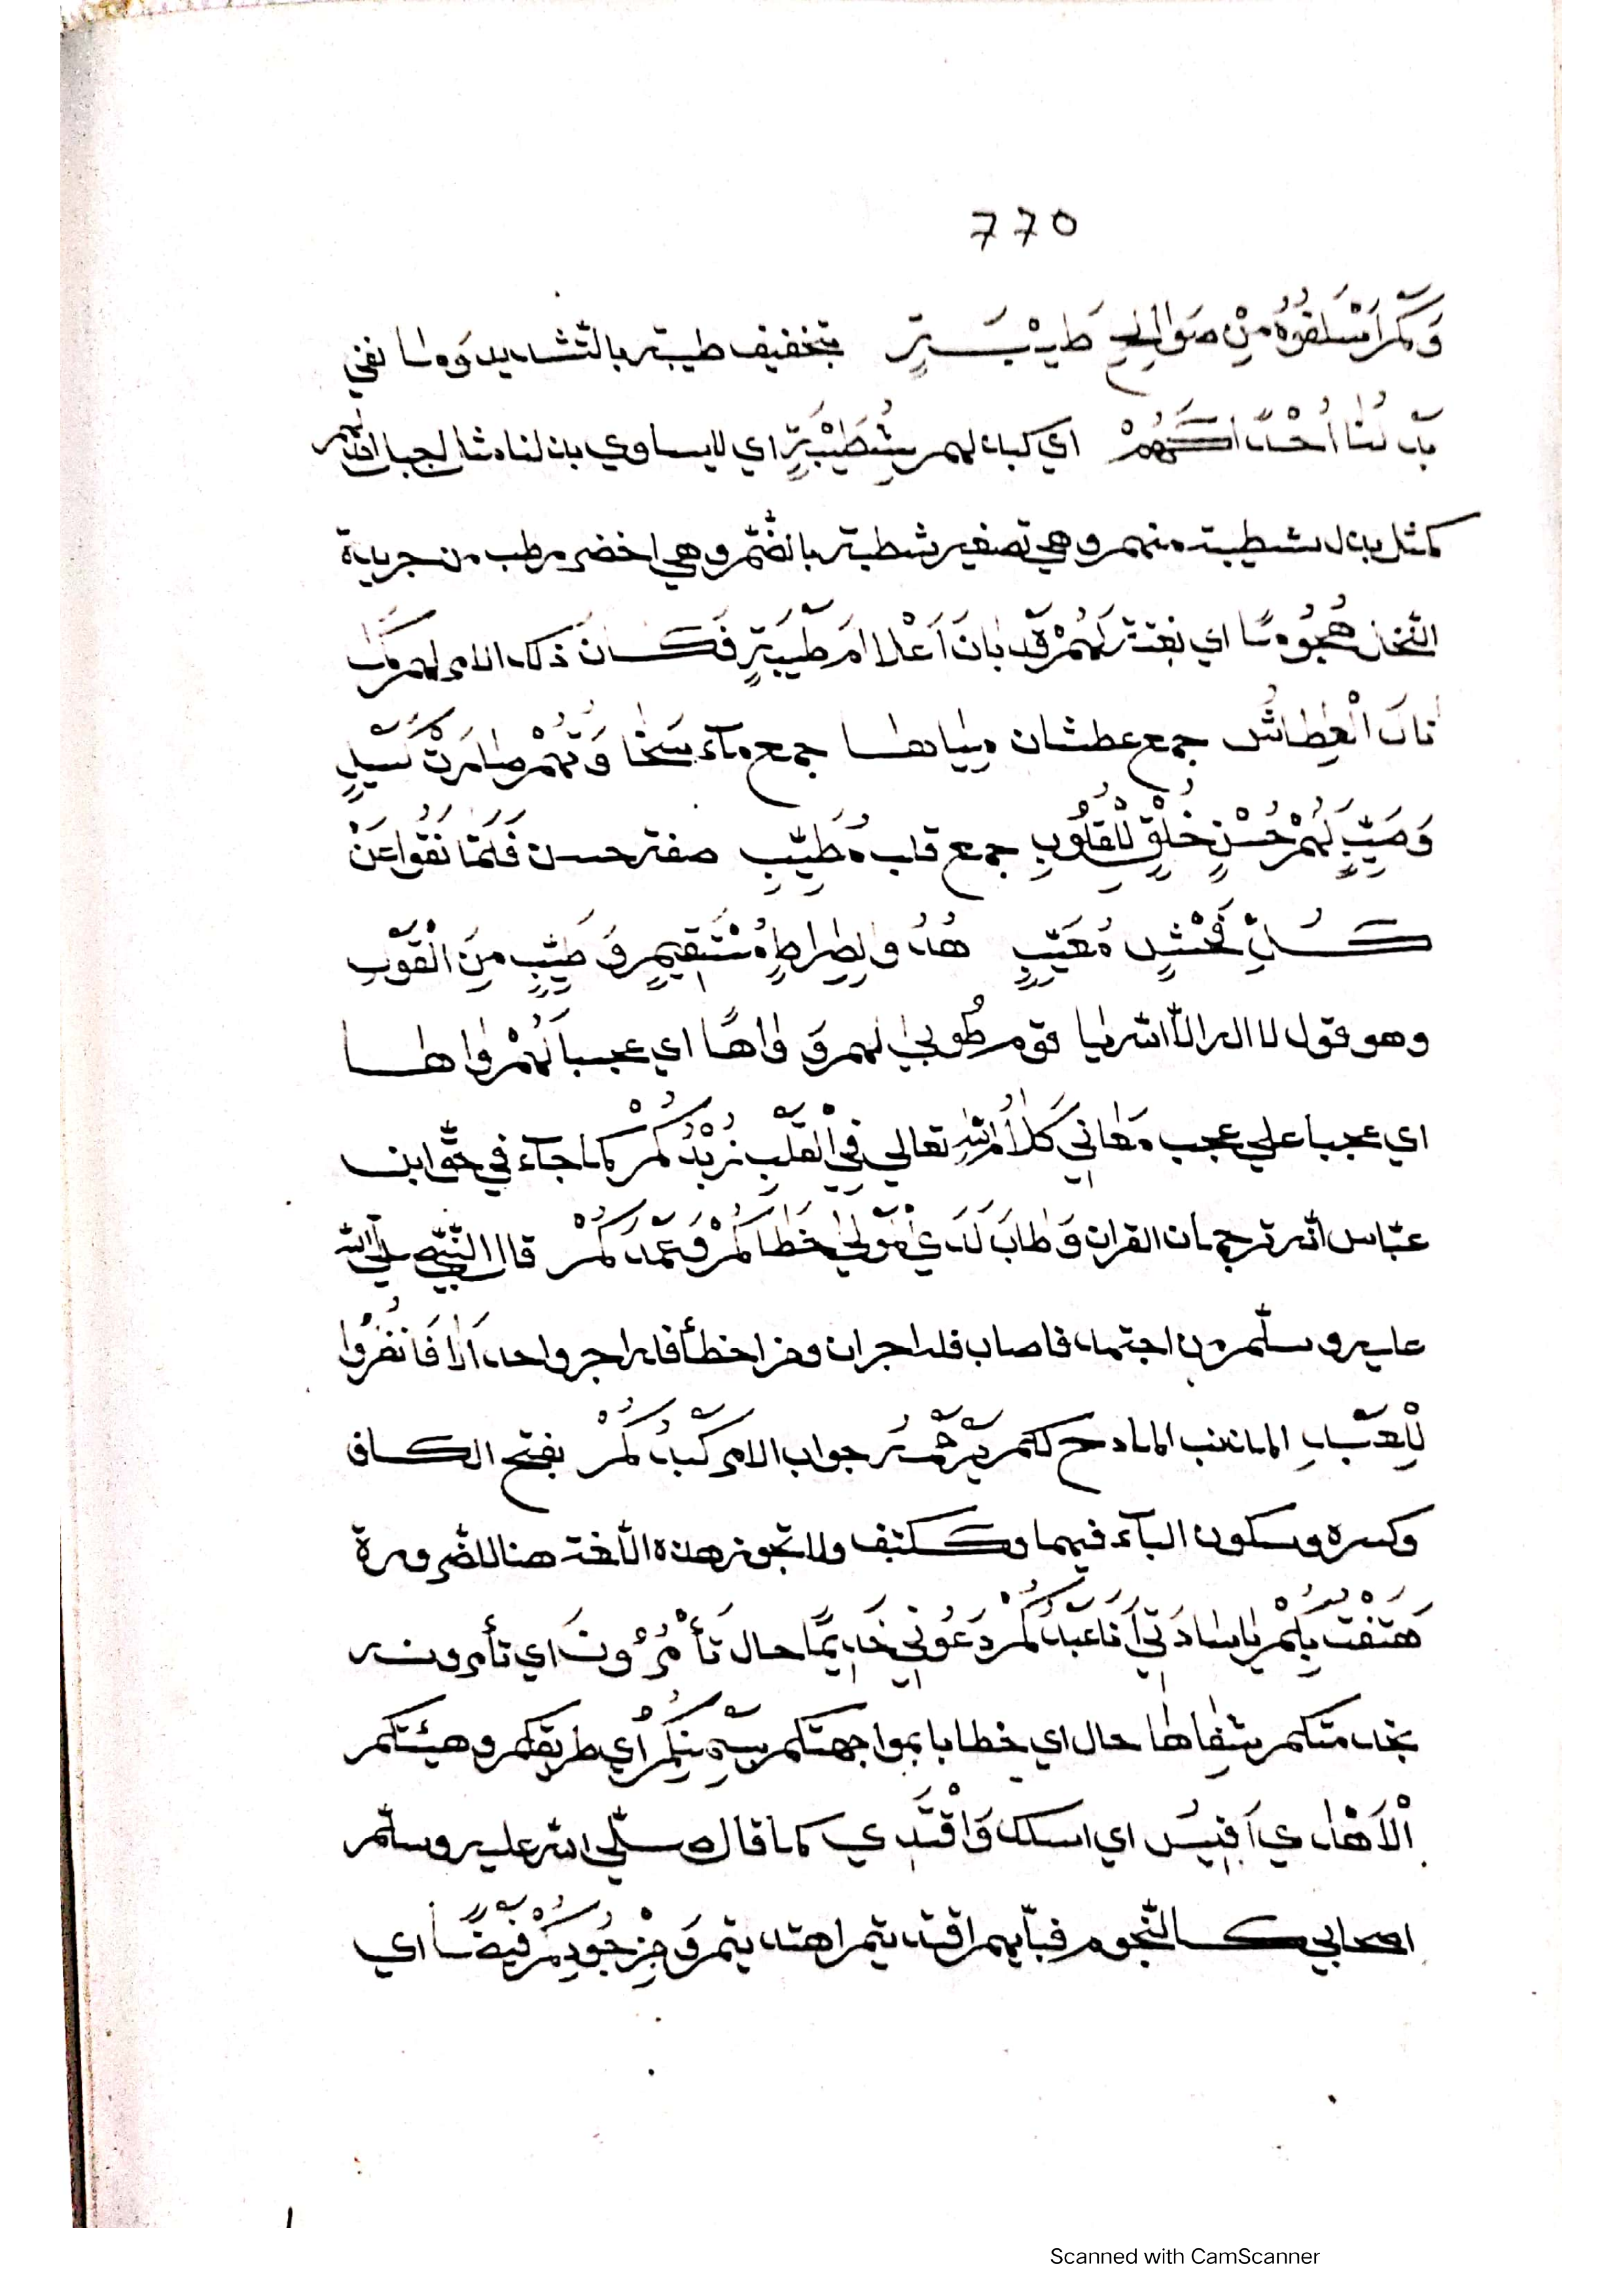 770
وَكَمْ اَسْلَفُوْهُ مِنْ صَوَالِحِ طَيْبَةٍ بتخفيف طيبة بالتشديد وَمَا نفي
بَذْلُنَا اُحْدًا كَمُدِّهِمْ اي كبذل لهم بِشُطَيْبَةٍ اي لا يساوي بذلنا مثل جبال
كمثل بذل شطيبة منهم وهي تصغير شطبة بالضّمّ وهي اخضر رطب من جريدة
النّخل هُجُوْمًا اي بغتة لَهُمْ قَدْ بَانَ اَعْلَامُ طَيِّبَةٍ فَكَانَ ذلك الامر لهم كَمَا
نَالَ الْعِطَاشُ جمع عطشان مِيَاهَا جمع مآء سَخَا وَ
وَصَيِّبٍ لَهُمْ حُسْنِ خُلْقٍ لِلْقُلُوْبِ جمع قلب مُطَيِّبِ صفة حسن فَلَمَّا نَقَوْا عَنْ
كُلِّ فُحْشٍ مُعَيَّبٍ هُدُوْا لِصِرَاطٍ مُسْتَقِيْمٍ وَطَيِّبٍ مِنَ الْقَوْلِ
وهو قول لا اله الّا الله يا قوم طُوْبٰى لهم وَ وَاهًا اي عجبا لَهُمْ وَاهَا
اي عجبا علي عجب مَعَانِي كَلَامُ اللهِ تعالي فِي الْقَلْبِ زُبْدُكُمْ كما جآء في حقّ ابن
عبّاس انّه ترجمان القران وَطَابَ لَدَى الْمَوْلٰى خَطَاكُمْ وَعَمْدُكُمْ قال النّبيّ صلّي الله
عليه وسلّم من اجتهد فاصاب فله اجران ومن اخطأ فله اجر واحد اَلَا فَانْفُرُوْا
لِلْعَبْدِ المذنب المادح لكم جواب الامر كَبْدُكُمْ بفتح الكاف
وكسره وسكون البآء فيهما وككتف ولا تجوز هذه اللّغة هنا للضّرورة
هَتَفْتُ بِكُمْ يَا سَادَتِي اَنَا عَبْدُكُمْ دَعُوْنِي خَدِيْمًا حال تَأْمُرُوْنَ اي تأمرونه
بخدمتكم شِفَاهَا حال اي خطابا بمواجهتكم بِسِيْمَتِكُمْ اي طريقكم وهيئتكم
الْاَهْدٰى اَقِيْسُ اي اسلك وَاَقْتَدِي كما قال صلّي الله عليه وسلّم
اصحابي كالنّجوم فبأيّهم اقتديتم اهتديتم وَمِنْ جُوْدِكُمْ فَيْضًا اي
Scanned with CamScanner